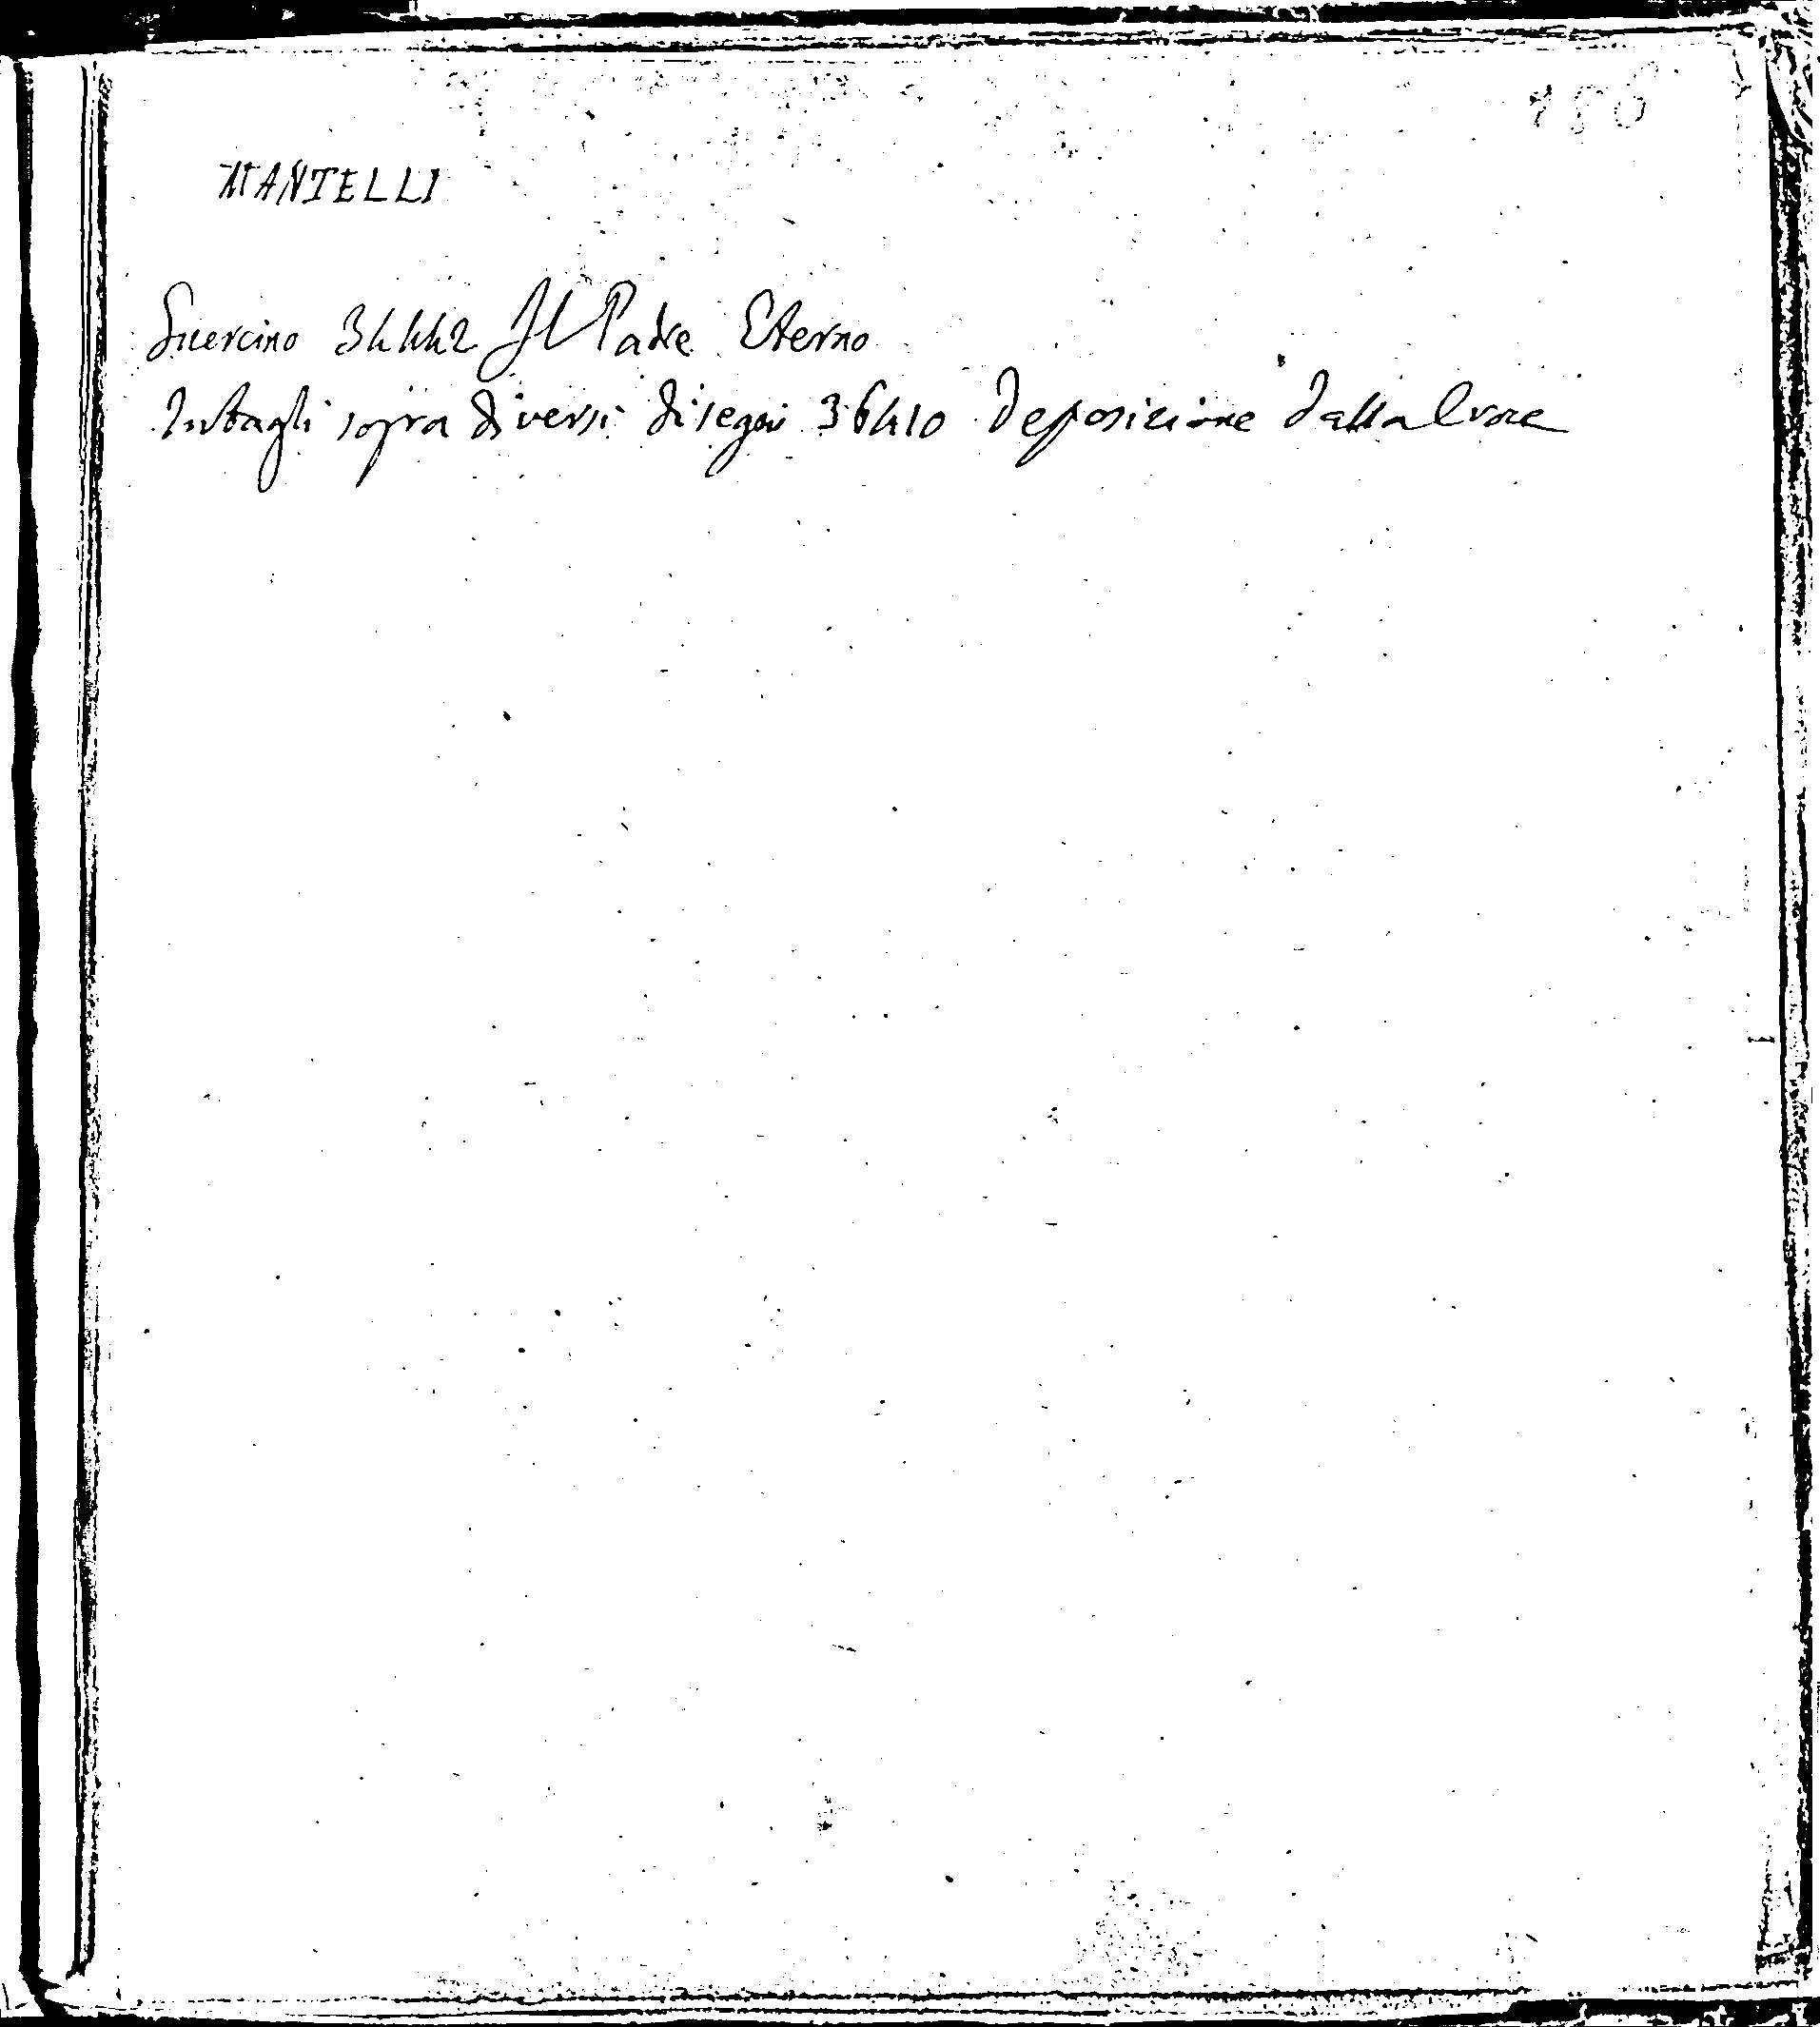 186
MANTELLI
Guercino 34442 Il Padre Eterno
Intagli sopra diversi disegni 36410 Deposizione dalla Croce